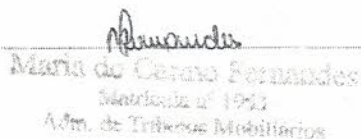 Fernandes
Maria do Carmo Fernandes
Matrícula nº 1953
Adm. de Tributos Mobiliários